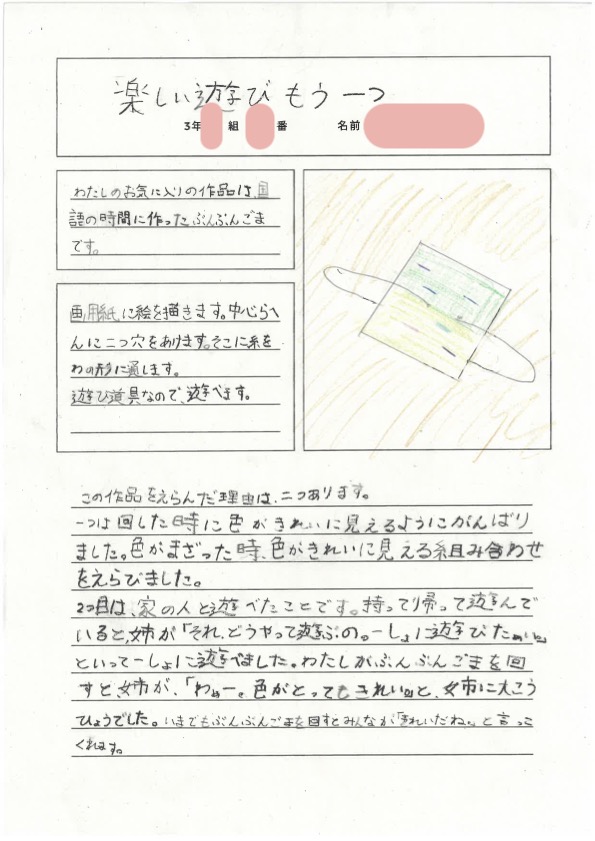 楽しい遊び もう一つ
3年 組 番 名前
わたしのお気に入りの作品は、国
語の時間に作ったぶんぶんごま
です。
画用紙に絵を描きます。中心らへ
んに二つ穴をあけます。そこに糸を
わの形に通します。
遊び道具なので、遊べます。
この作品をえらんだ理由は、二つあります。
一つは回した時に色がきれいに見えるようにがんばり
ました。色がまざった時、色がきれいに見える組み合わせ
をえらびました。
2つ目は、家の人と遊べたことです。持って帰って遊んで
いると、姉が「それ、どうやって遊ぶの。一しょに遊びたい。」
といって一しょに遊べました。わたしがぶんぶんごまを回
すと、姉が、「わぁー。色がとってもきれい。」と、姉に大こう
ひょうでした。いまでもぶんぶんごまを回すとみんなが「きれいだね。」と言って
くれます。